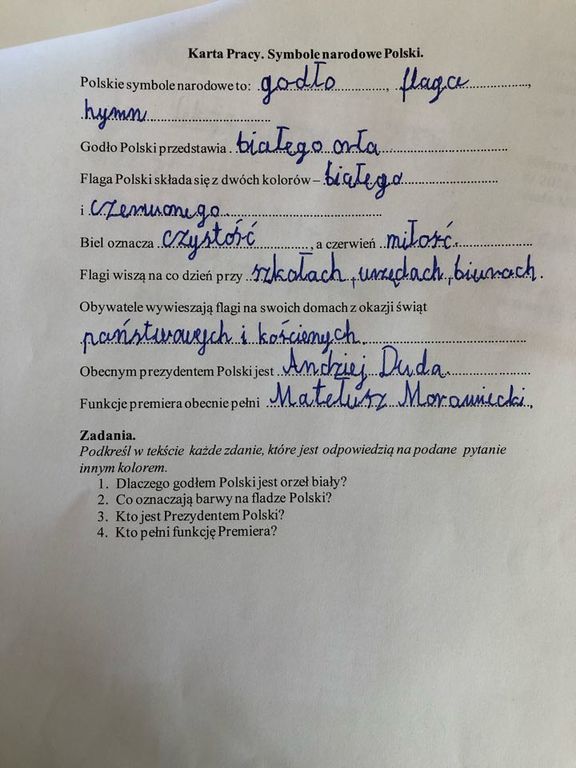 Karta Pracy. Symbole narodowe Polski.
Polskie symbole narodowe to: godło, flaga,
hymn
Godło Polski przedstawia białego orła
Flaga Polski składa się z dwóch kolorów – białego
i czerwonego
Biel oznacza czystość, a czerwień miłość.
Flagi wiszą na co dzień przy szkołach, urzędach, biurach.
Obywatele wywieszają flagi na swoich domach z okazji świąt
państwowych i kościenych
Obecnym prezydentem Polski jest Andrzej Duda
Funkcje premiera obecnie pełni Matełusz Morawiecki.
Zadania.
Podkreśl w tekście każde zdanie, które jest odpowiedzią na podane pytanie
innym kolorem.
1. Dlaczego godłem Polski jest orzeł biały?
2. Co oznaczają barwy na fladze Polski?
3. Kto jest Prezydentem Polski?
4. Kto pełni funkcję Premiera?